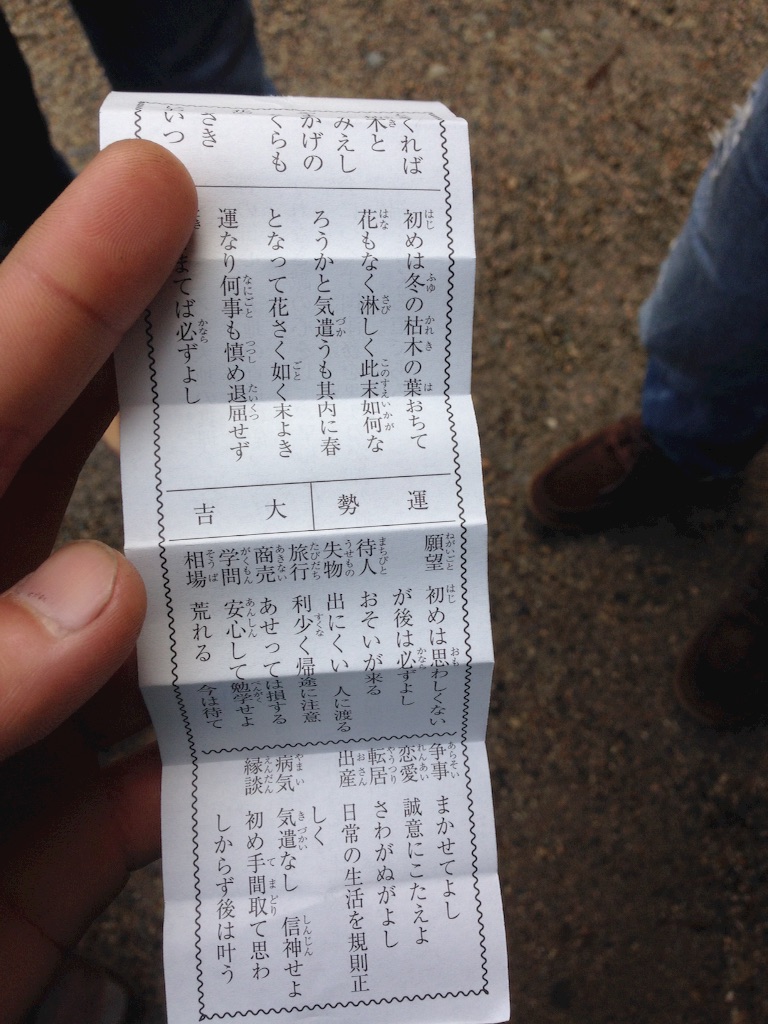 くれば
木と
みえし
かげの
くらも
さき
いつ
初めは冬の枯木の葉おちて
花もなく淋しく此末如何な
ろうかと気遣うも其内に春
となって花さく如く末よき
運なり何事も慎め退屈せず
まてば必ずよし
運勢
大吉
願望 初めは思わしくない
が後は必ずよし
待人 おそいが来る
失物 出にくい 人に渡る
旅行 利少く帰途に注意
商売 あせっては損する
学問 安心して勉学せよ
相場 荒れる 今は待て
争事 まかせてよし
恋愛 誠意にこたえよ
転居 さわがぬがよし
出産 日常の生活を規則正
しく
病気 気遣なし 信神せよ
縁談 初め手間取て思わ
しからず後は叶う